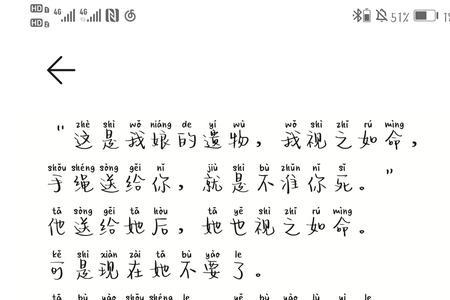 HD 1 4G 4G 51%
HD 2
zhè shì wǒ niáng de yí wù wǒ shì zhī rú mìng
“这是我娘的遗物，我视之如命，
shǒu shéng sòng gěi nǐ jiù shì bù zhǔn nǐ sǐ
手绳送给你，就是不准你死。”
tā sòng gěi tā hòu tā yě shì zhī rú mìng
他送给她后，她也视之如命。
kě shì xiàn zài tā bù yào le
可是现在她不要了。